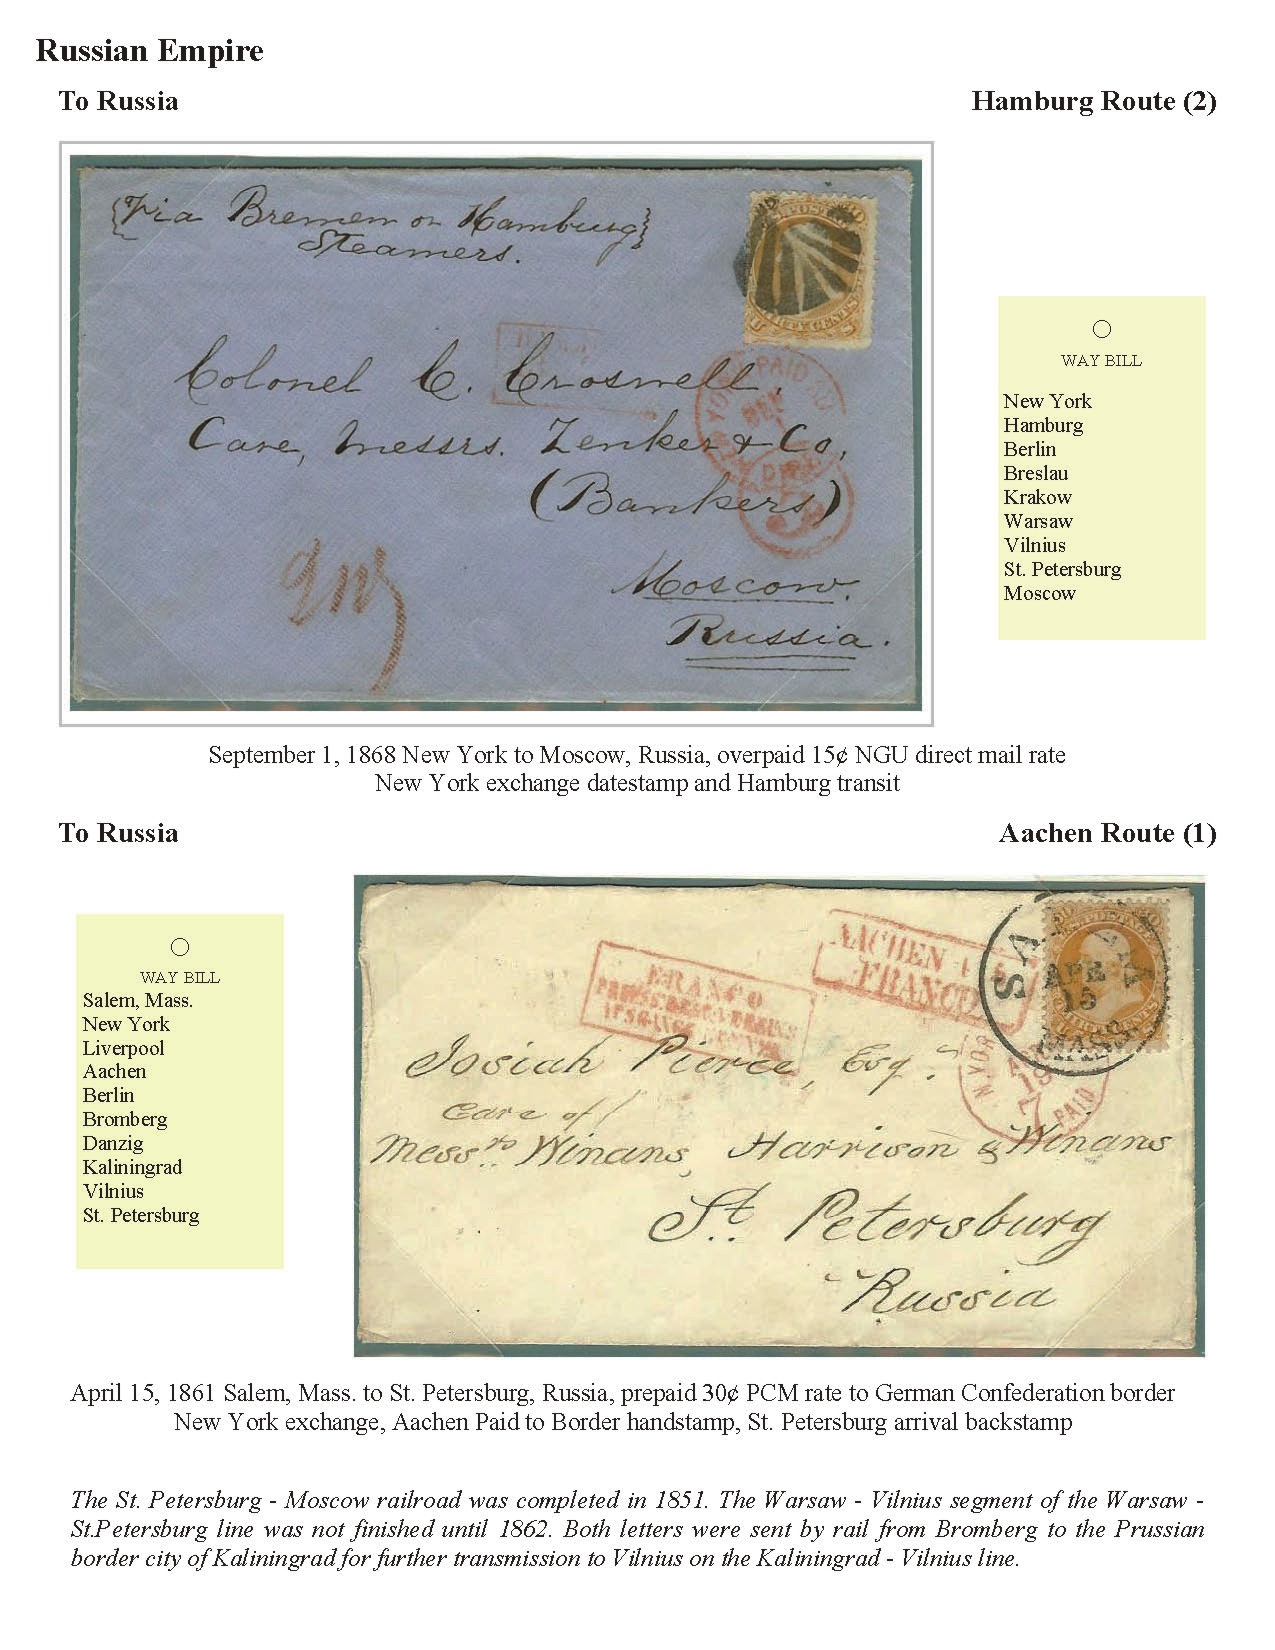 Russian Empire
To Russia
Hamburg Route (2)
{Via Bremen or Hamburg}
Steamers.
Colonel C. Croswell.
Care, Messrs. Zenker & Co,
(Bankers)
Moscow.
Russia.
PAID
WAY BILL
New York
Hamburg
Berlin
Breslau
Krakow
Warsaw
Vilnius
St. Petersburg
Moscow
September 1, 1868 New York to Moscow, Russia, overpaid 15¢ NGU direct mail rate
New York exchange datestamp and Hamburg transit
To Russia
Aachen Route (1)
WAY BILL
Salem, Mass.
New York
Liverpool
Aachen
Berlin
Bromberg
Danzig
Kaliningrad
Vilnius
St. Petersburg
AACHEN
FRANCO
FRANCO
SA
APR
15
MASS
N. YOR
18
7
PAID
Josiah Pierce, Esqr.
Care of
Messrs. Winans, Harrison & Winans
St. Petersburg
Russia
April 15, 1861 Salem, Mass. to St. Petersburg, Russia, prepaid 30¢ PCM rate to German Confederation border
New York exchange, Aachen Paid to Border handstamp, St. Petersburg arrival backstamp
The St. Petersburg - Moscow railroad was completed in 1851. The Warsaw - Vilnius segment of the Warsaw -
St.Petersburg line was not finished until 1862. Both letters were sent by rail from Bromberg to the Prussian
border city of Kaliningrad for further transmission to Vilnius on the Kaliningrad - Vilnius line.